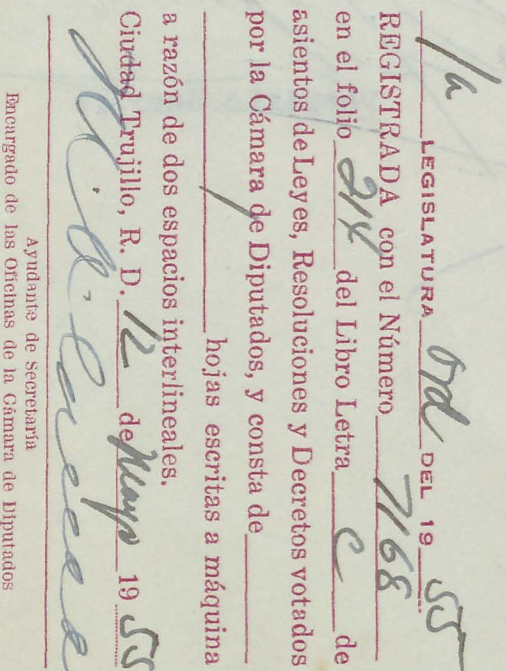 1a LEGISLATURA Ord DEL 1955
REGISTRADA con el Número 7168
en el folio 214 del Libro Letra C de
asientos de Leyes, Resoluciones y Decretos votados
por la Cámara de Diputados, y consta de
1 hojas escritas a máquina
a razón de dos espacios interlineales.
Ciudad Trujillo, R. D. 12 de Mayo 1955
Ayudante de Secretaría
Encargado de las Oficinas de la Cámara de Diputados